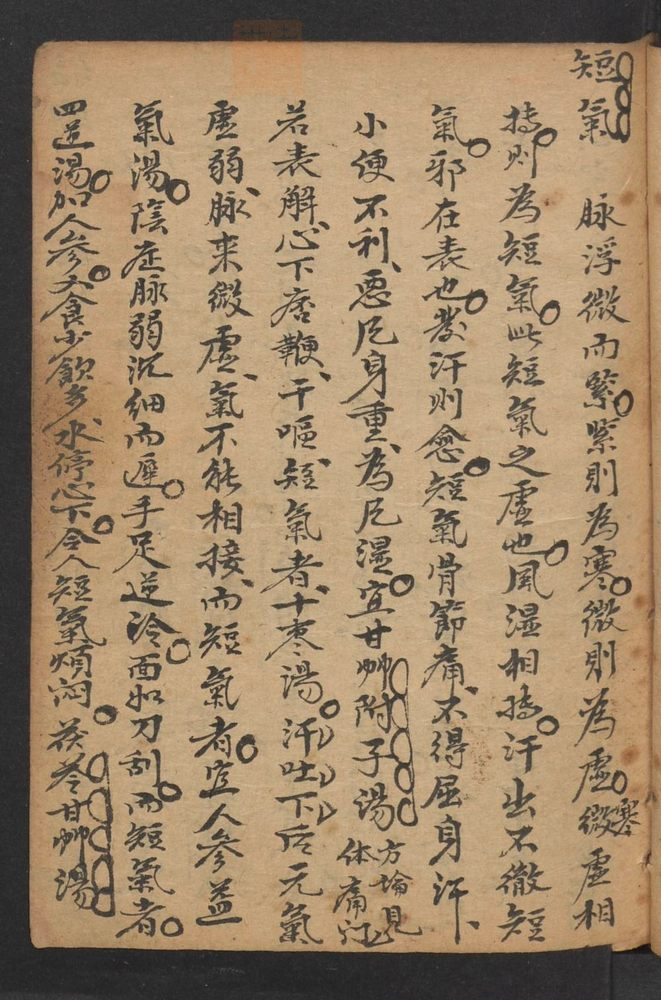 短氣　脉浮微而緊緊則為寒微則為虛微寒虛相
搏则為短氣此短氣之虛也風湿相搏汗出不徹短
氣邪在表也發汗则愈短氣骨節痛不得屈身汗
小便不利惡风身重為风湿宜甘艸附子湯方論見体痛门
若表解心下痞鞭干嘔短氣者十枣湯汗吐下后元氣
虛弱脉来微虛氣不能相接而短氣者宜人參益
氣湯陰症脉弱沉細而遲手足逆冷面如刀刮而短氣者
四逆湯加人參又食少飲多水停心下令人短氣煩闷茯苓甘艸湯